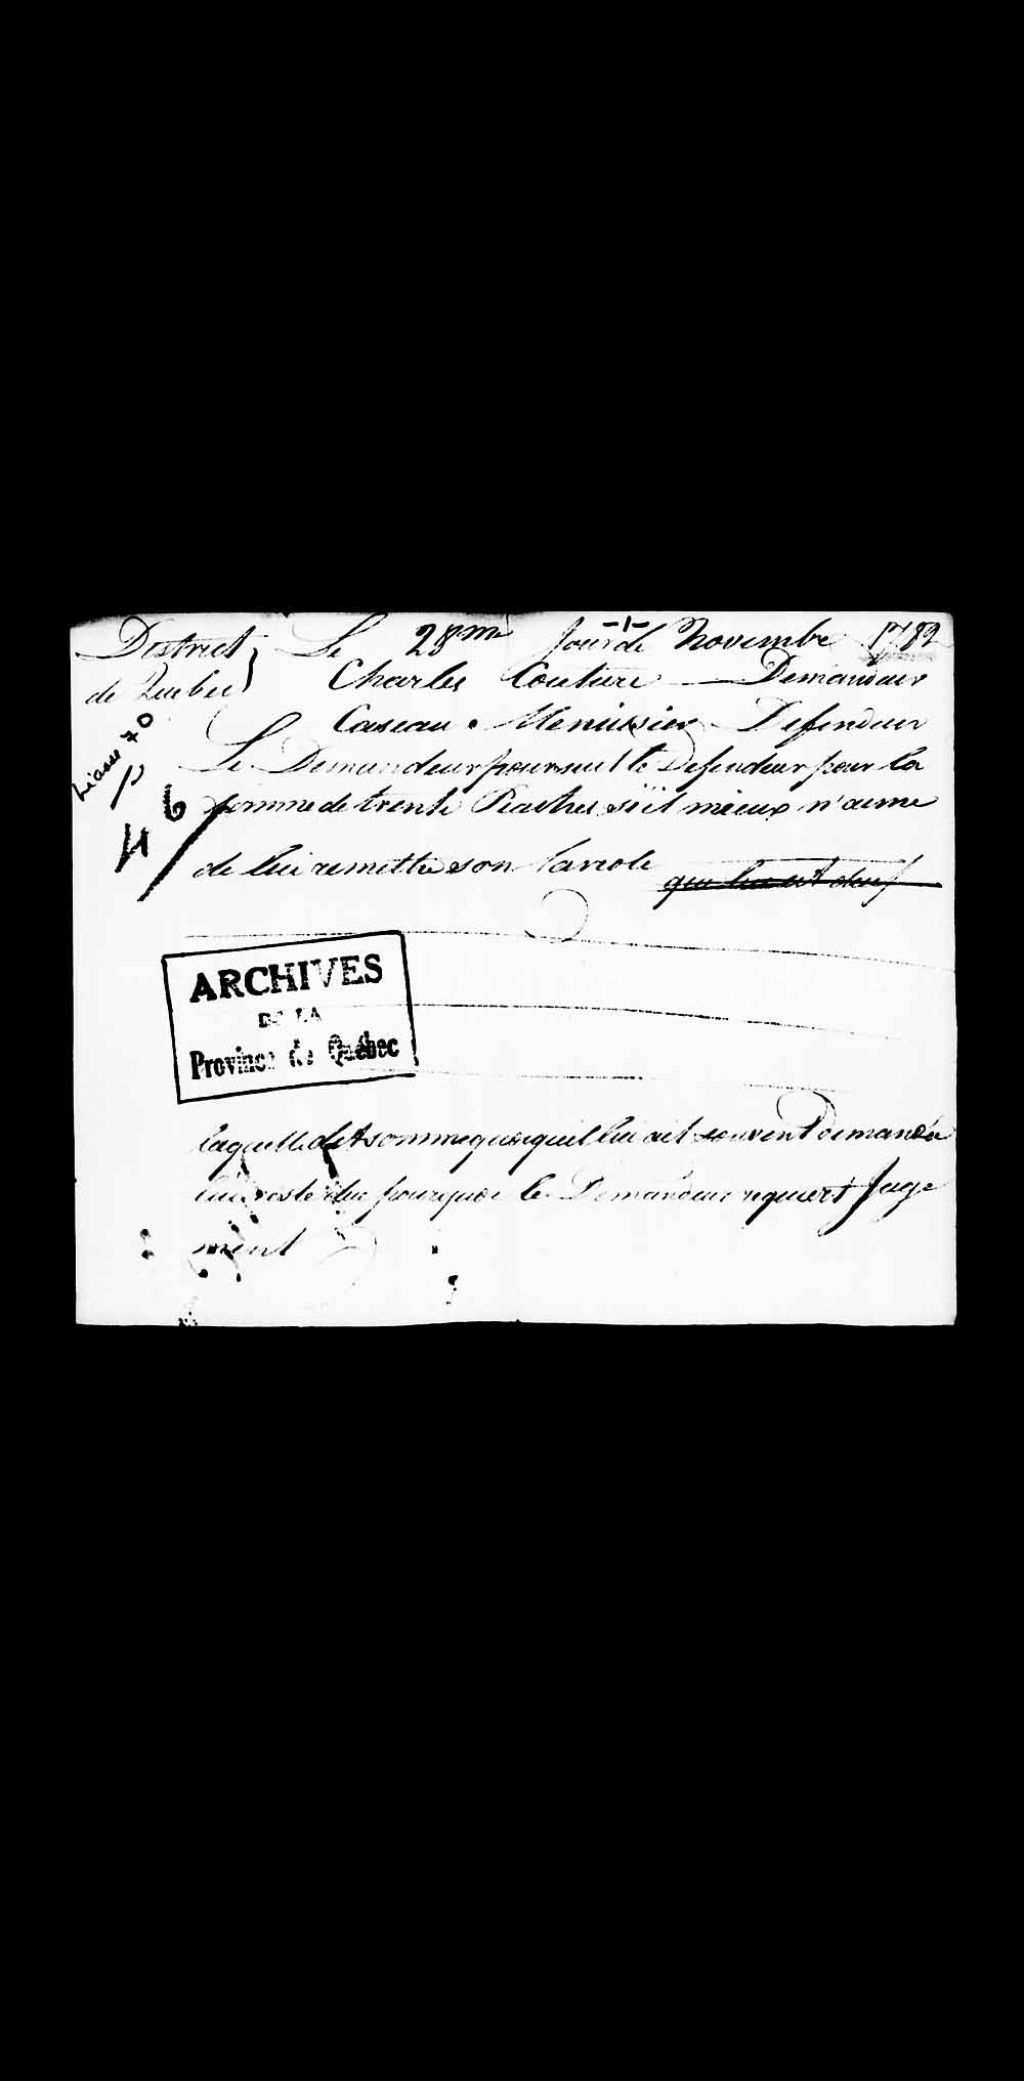 District } Le 28me Jour de Novembre 1782
-1-
de Quebec } Charles Couture — Demandeur
Caseau Menuisier - Defendeur
Liasse 70
Le Demandeur poursuit le Defendeur pour la
6 somme de trente Piastres si il mieux n'aime
de lui remettre son Cariole qui lui est
ARCHIVES
DE LA
Province de Québec
laquelle dit somme quoiquil lui ait souvent demandée
lui reste due pourquoi le Demandeur requiert Juge
ment